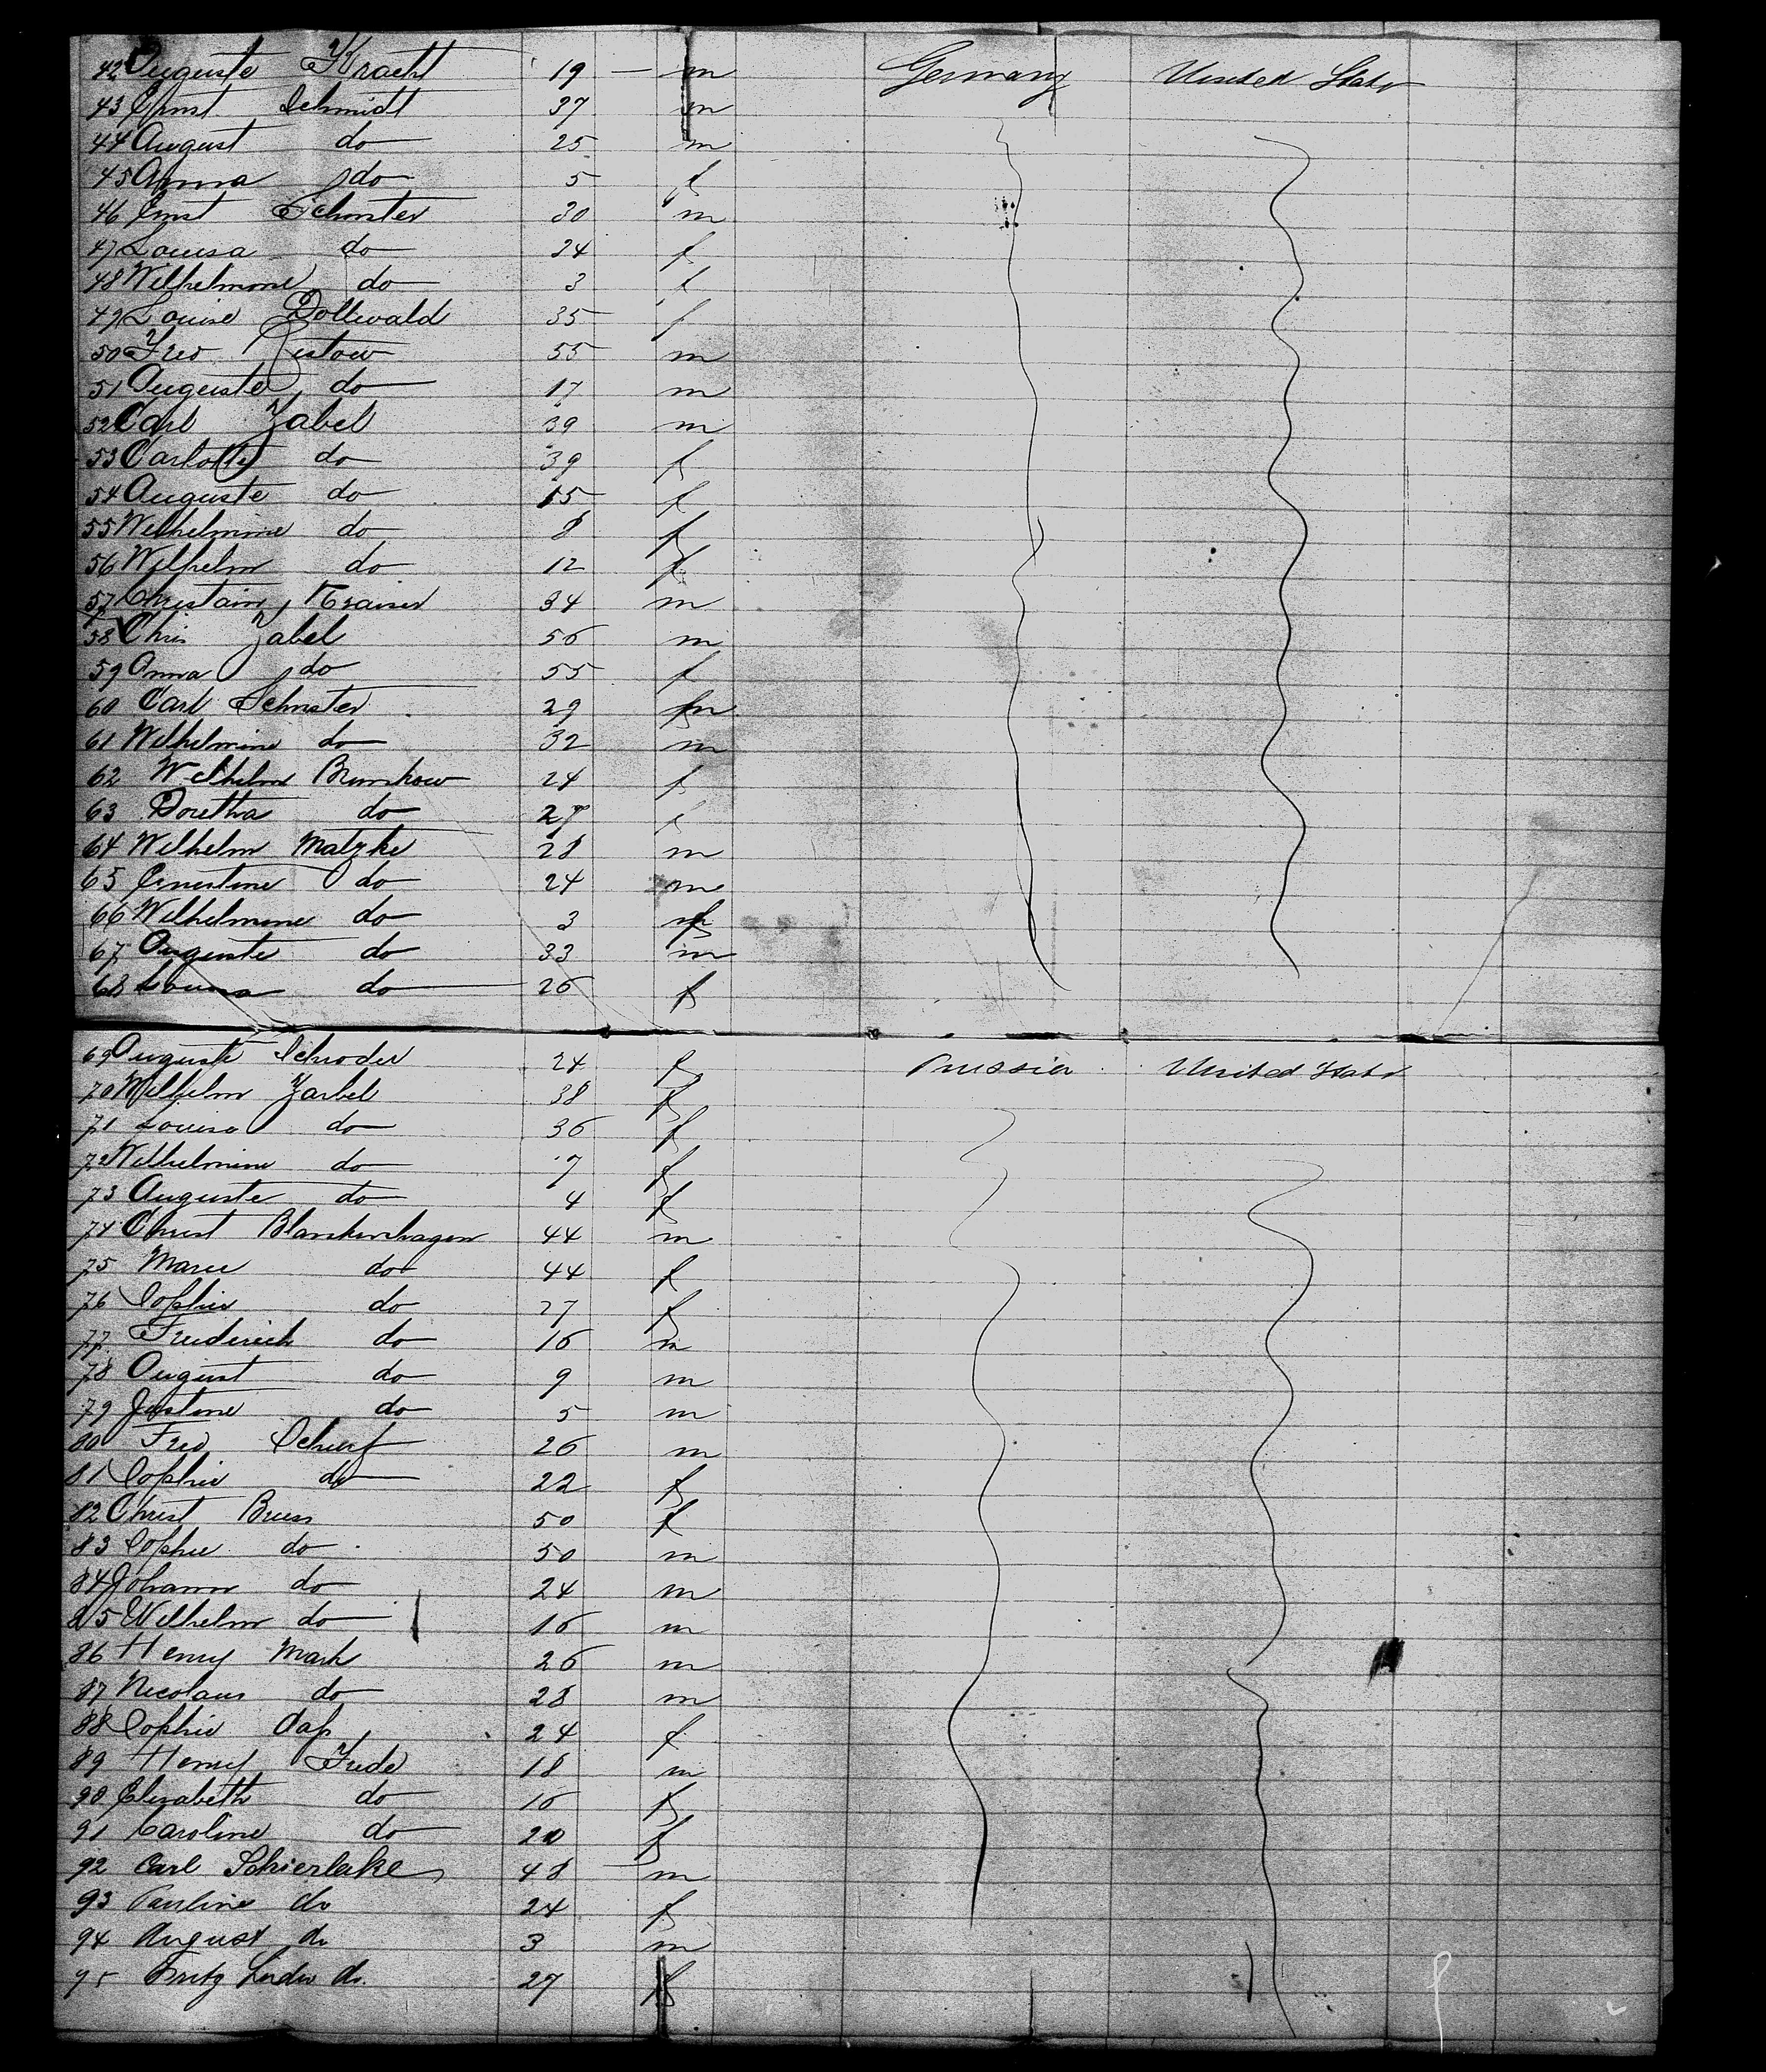 42 Auguste Kracht 19 — m Germany United States
43 Ernst Schmidt 37 m
44 August do 25 m
45 Anna do 5 f
46 Ernst Schuster 30 m
47 Louisa do 24 f
48 Wilhelmine do 3 f
49 Louise Dollwald 35 f
50 Fred 55 m
51 Auguste do 17 m
52 Carl Zabel 39 m
53 Carlotte do 39 f
54 Auguste do 15 f
55 Wilhelmine do 8 f
56 Wilhelm do 12 f
57 Christain Kraiser 34 m
58 Chris Zabel 56 m
59 Anna do 55 f
60 Carl Schuster 29 m
61 Wilhelmine do 32 m
62 Wilhelm Brunkow 24 f
63 Doretha do 27 f
64 Wilhelm Matzke 28 m
65 Ernestine do 24 m
66 Wilhelmine do 3 f
67 Auguste do 33 m
68 Louisa do 26 f
69 Auguste Schroder 24 f Prussia United States
70 Wilhelm Zarbel 38 f
71 Louisa do 36 f
72 Wilhelmine do 7 f
73 Auguste do 4 f
74 Christ Blankenhagen 44 m
75 Marie do 44 f
76 Sophie do 27 f
77 Frederick do 16 m
78 August do 9 m
79 Justine do 5 m
80 Fred 26 m
81 Sophie do 22 f
82 Christ Buss 50 f
83 Sophie do 50 m
84 Johann do 24 m
85 Wilhelm do 16 m
86 Henry Mark 26 m
87 Nicolaus do 28 m
88 Sophie 24 f
89 Henry Frede 18 m
90 Elizabeth do 16 f
91 Caroline do 20 f
92 Carl Schierlake 48 — m
93 Pauline do 24 f
94 August do 3 m
95 Fritz do. 27 f